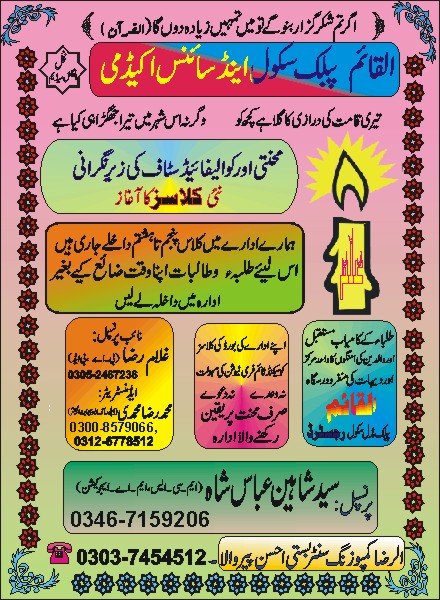 اگر تم شکر گزار بنو گے تو میں تمہیں زیادہ دوں گا (القرآن)
القائم پبلک سکول اینڈ سائنس اکیڈمی
تیری قامت کی درازی کا گلا ہے کچھ کو
وگرنہ اس شہر میں تیرا جھگڑا ہی کیا ہے
محنتی اور کوالیفائیڈ سٹاف کی زیر نگرانی
نئی کلاسز کا آغاز
ہمارے ادارے میں کلاس پنجم تا ہشتم داخلے جاری ہیں
اس لیئے طلبہء و طالبات اپنا وقت ضائع کیے بغیر
ادارہ میں داخلہ لے لیں
طلباء کے کامیاب مستقبل
اور والدین کی امنگوں کا واحد مرکز
اور دیہات کی منفرد درسگاہ
القائم
پبلک ماڈل سکول رجسٹرڈ
اپنے ادارے کی بورڈ کی کلاسز
کو سیکنڈ ٹائم فری ٹیوشن کی سہولت
نہ وعدے نہ دعوے
صرف محنت پر یقین
رکھنے والا ادارہ
نائب پرنسپل:
غلام رضا
0305-2467236
ایڈمنسٹریٹر:
محمد رضا محمدی
0300-8579066,
0312-6778512
پرنسپل: سید شاہین عباس شاہ (ایم سی ایس، ایم اے ایجوکیشن)
0346-7159206
الرضا کمپوزنگ سنٹر بستی احسن پیر والا۔ 0303-7454512